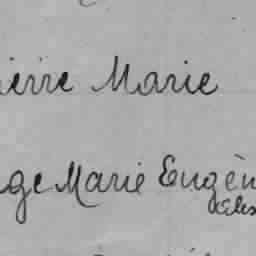 ierre Marie
ge Marie Eugèn